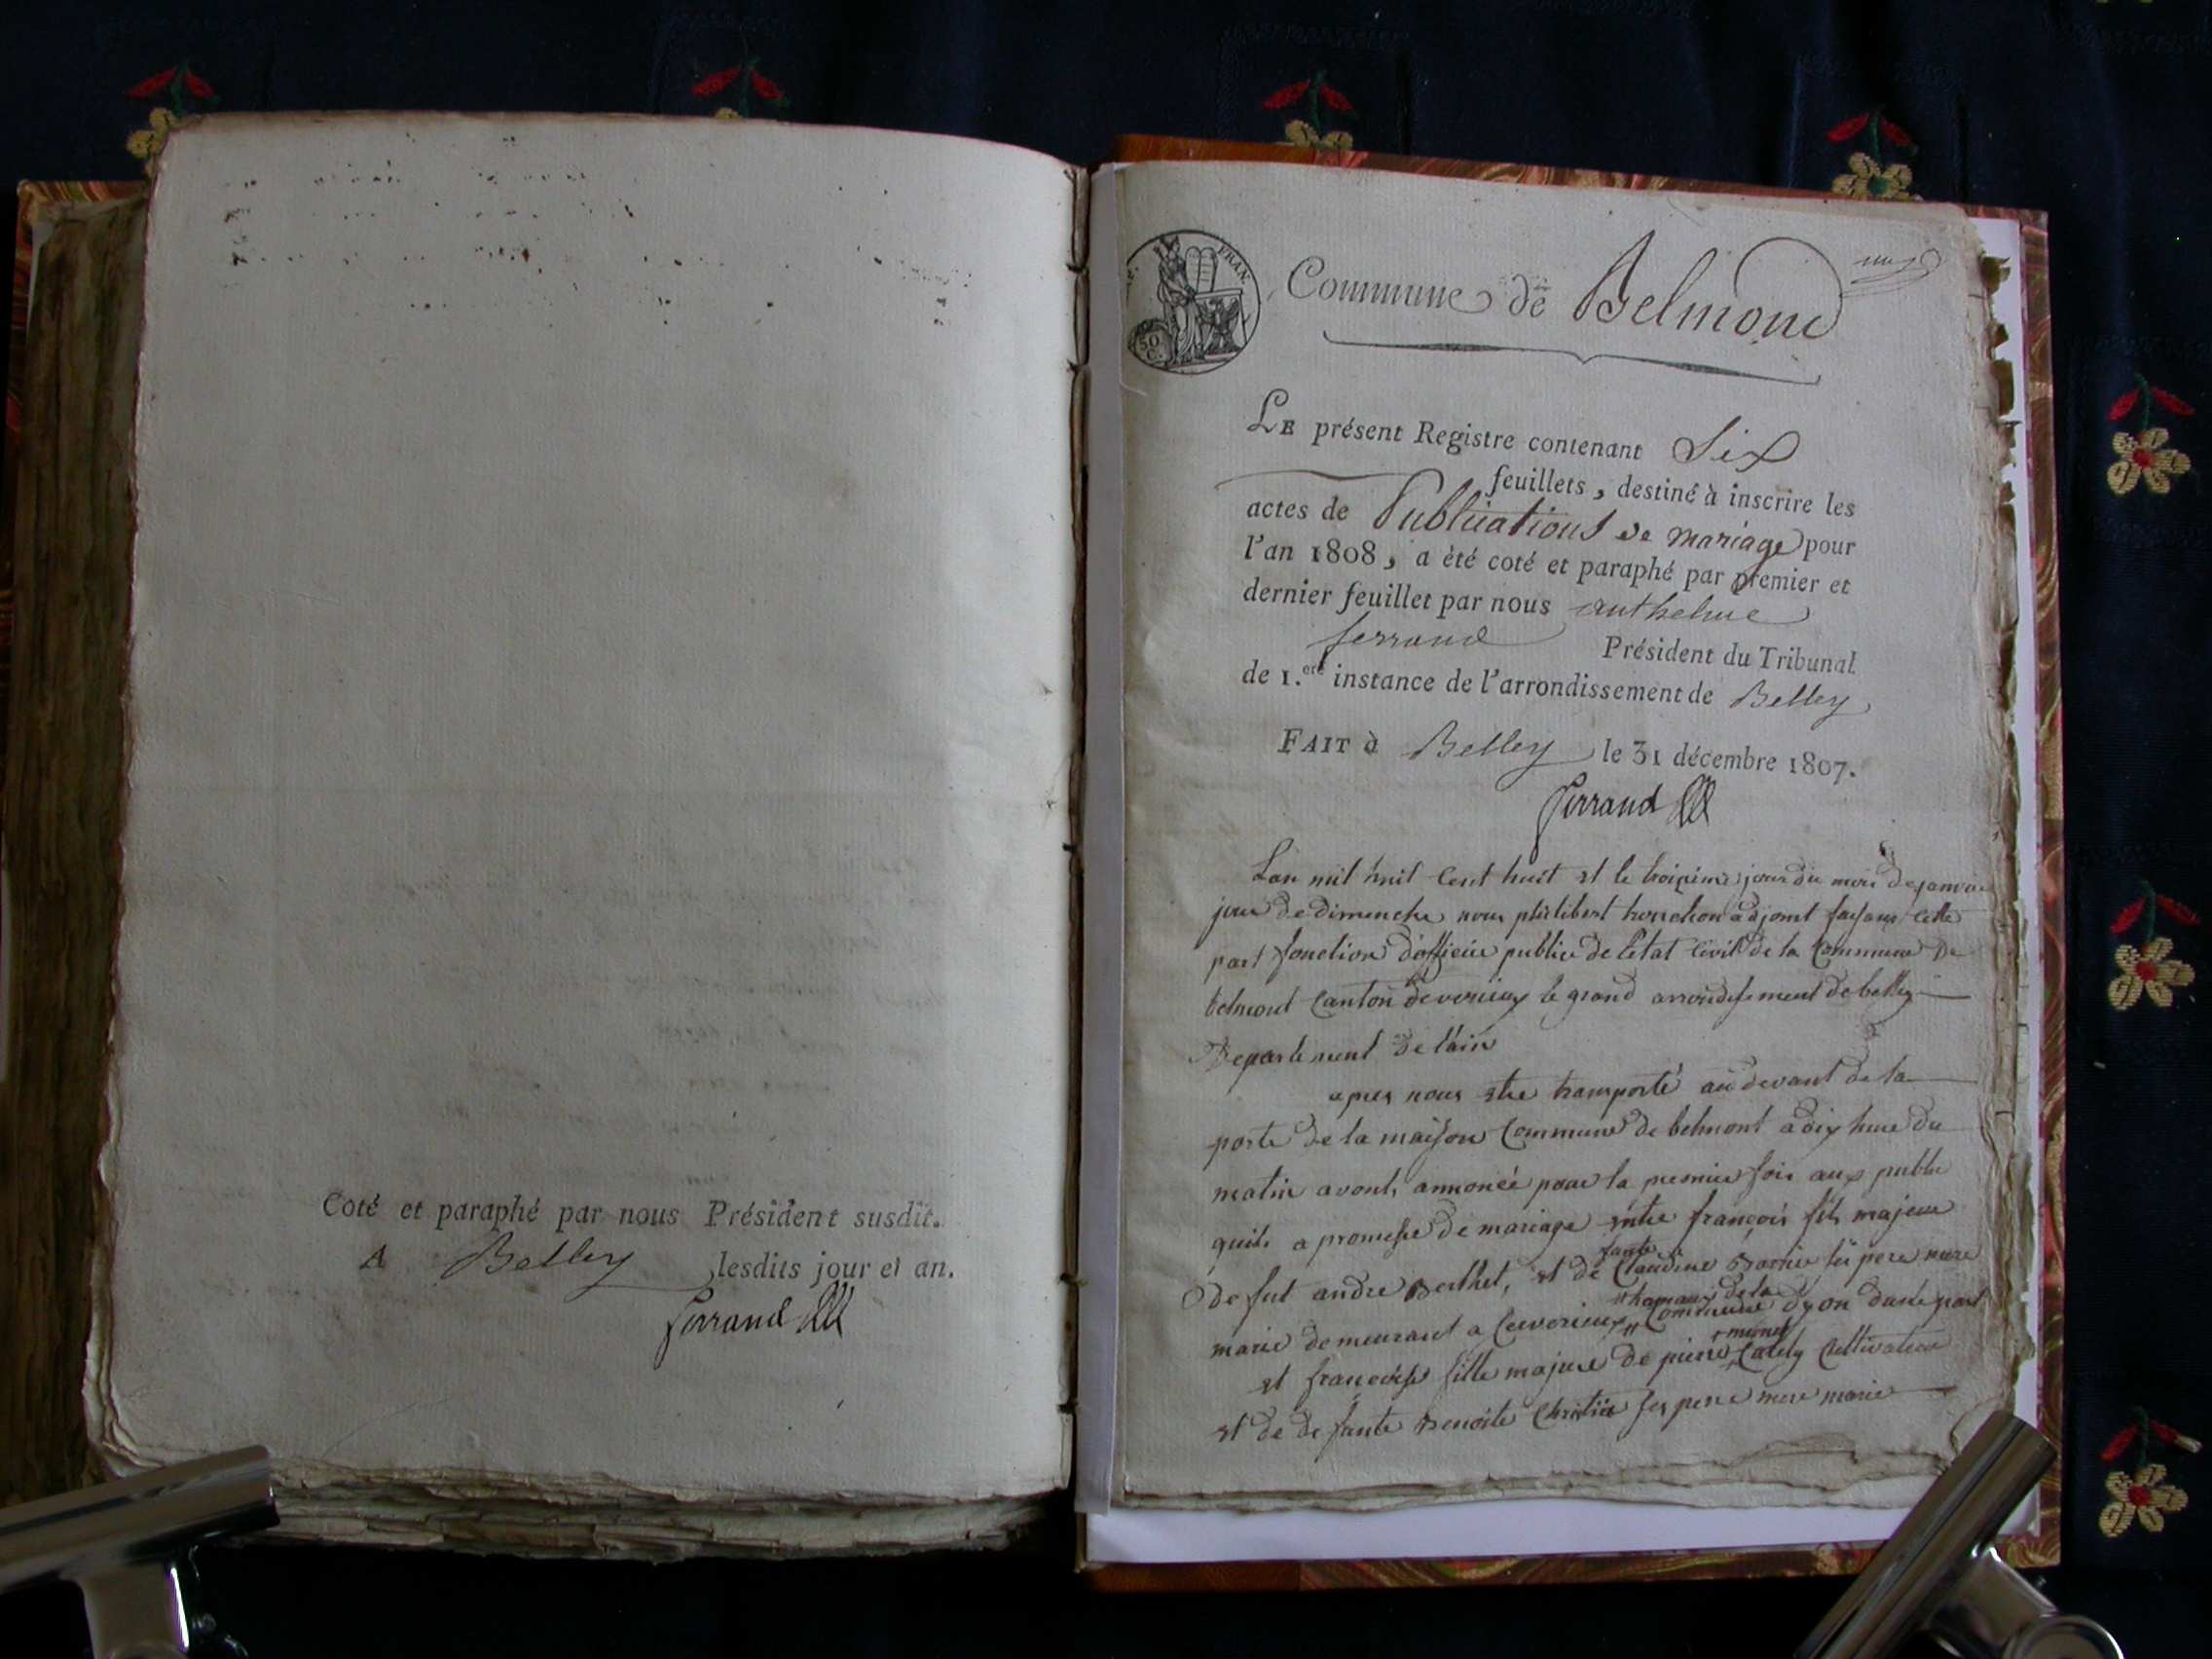 Coté et paraphé par nous Président susdit.
A Belley lesdits jour et an.
Ferrand
FRAN.
50
C.
Commune de Belmont
LE présent Registre contenant Six
feuillets, destiné à inscrire les
actes de Publications de mariage pour
l'an 1808, a été coté et paraphé par premier et
dernier feuillet par nous anthelme
ferrand Président du Tribunal
de 1.ere instance de l'arrondissement de Belley
FAIT à Belley le 31 décembre 1807.
Ferrand
Lan mil huit Cent huit et le troizieme jour du mois de janvier
jour de dimenche nous philibert tronchon adjoint faisant cette
part fonction d'officier publicu de letat Civil de la Commune De
belmont Canton de virieux le grand arrondissement de belley
Departement De lain
apres nous etre transporté au devant de la
porte de la maison Commune de belmont a dix heure du
matin avont annoncé pour la premier fois aux public
quil a promesse de mariage entre françois fils majeur
De fut andre Berthet, et de fante Claudine lui pere mere
marie demeurant a Cerverieux "hamaux de la Commune dyon dune part
et francoise fille majeure de pierre Cultivateur
et de defante Benoite ses pere mere marie